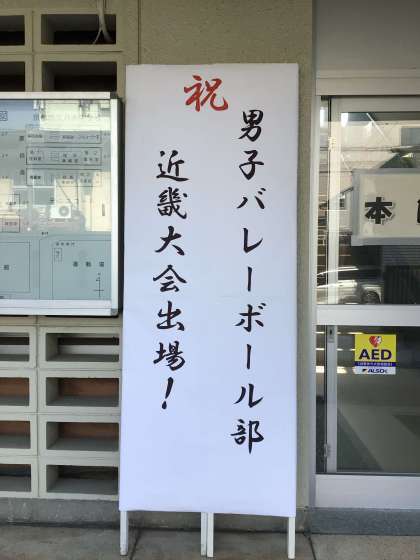 祝
男子バレーボール部
近畿大会出場！
本
AED
ALSOK